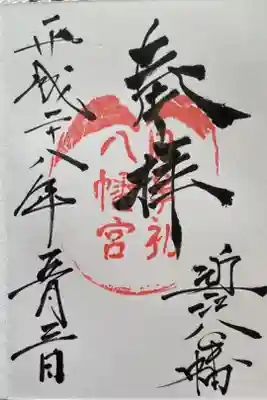 奉拝
近江八幡
日牟礼
八幡宮
平成二十八年五月三日